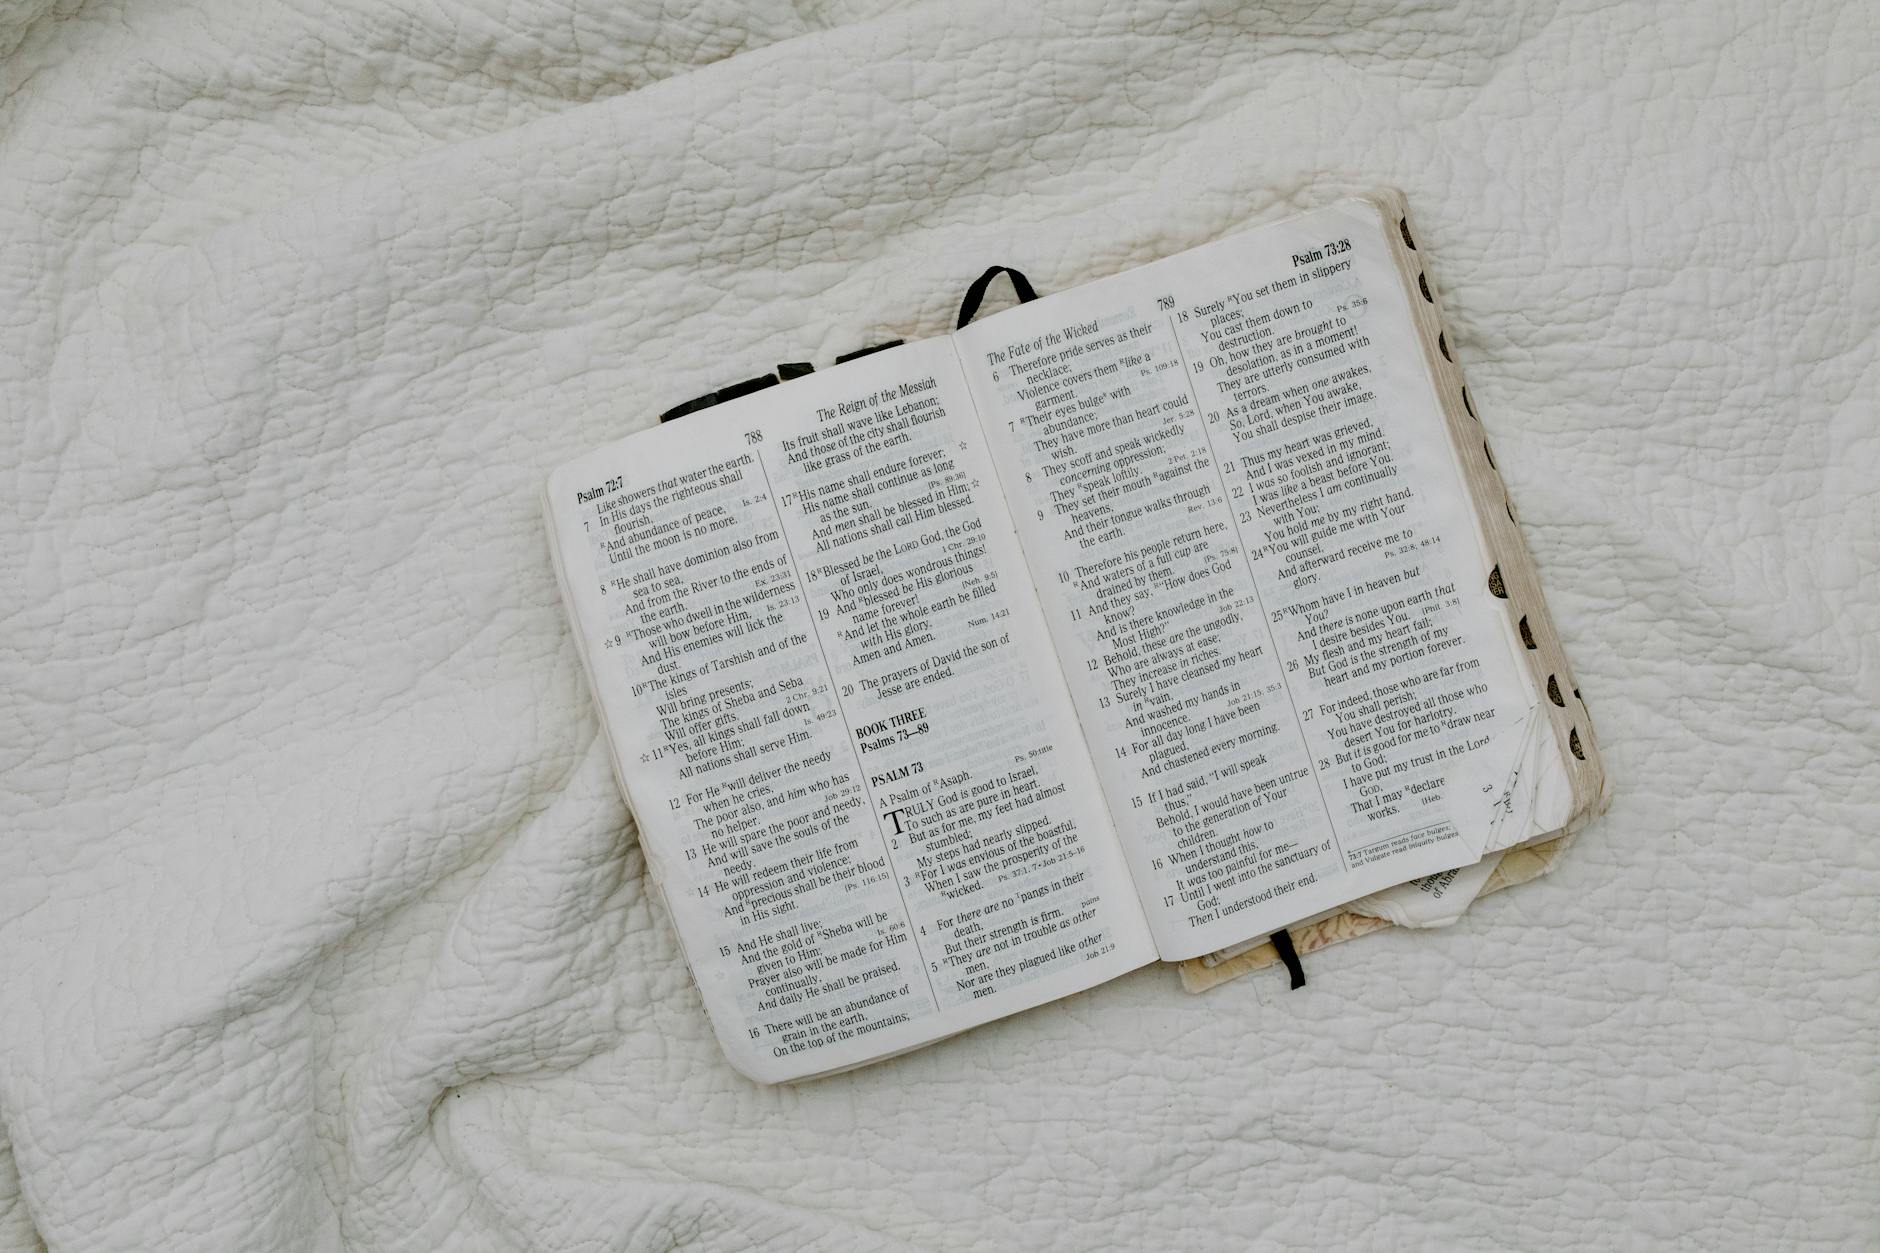 Psalm 72:7
788
Like showers that water the earth.
7 In His days the righteous shall
flourish,
ᴿAnd abundance of peace, Is. 2:4
Until the moon is no more.
8 ᴿHe shall have dominion also from
sea to sea,
And from the River to the ends of
the earth. Ex. 23:31
☆9 ᴿThose who dwell in the wilderness
will bow before Him, Is. 23:13
And His enemies will lick the
dust.
10 ᴿThe kings of Tarshish and of the
isles
Will bring presents;
The kings of Sheba and Seba
Will offer gifts. 2 Chr. 9:21
☆11 ᴿYes, all kings shall fall down
before Him; Is. 49:23
All nations shall serve Him.
12 For He ᴿwill deliver the needy
when he cries,
The poor also, and him who has
no helper. Job 29:12
13 He will spare the poor and needy,
And will save the souls of the
needy.
☆14 He will redeem their life from
oppression and violence;
And ᴿprecious shall be their blood
in His sight. [Ps. 116:15]
15 And He shall live;
And the gold of ᴿSheba will be
given to Him; Is. 60:6
Prayer also will be made for Him
continually,
And daily He shall be praised.
16 There will be an abundance of
grain in the earth,
On the top of the mountains;
The Reign of the Messiah
Its fruit shall wave like Lebanon;
And those of the city shall flourish
like grass of the earth.
17 ᴿHis name shall endure forever; ☆
His name shall continue as long
as the sun. [Ps. 89:36]
And men shall be blessed in Him; ☆
All nations shall call Him blessed.
18 ᴿBlessed be the LORD God, the God
of Israel, 1 Chr. 29:10
Who only does wondrous things!
19 And ᴿblessed be His glorious
name forever! [Neh. 9:5]
ᴿAnd let the whole earth be filled
with His glory.
Amen and Amen. Num. 14:21
20 The prayers of David the son of
Jesse are ended.
BOOK THREE
Psalms 73—89
PSALM 73
A Psalm of ᴿAsaph. Ps. 50:title
TRULY God is good to Israel,
To such as are pure in heart.
2 But as for me, my feet had almost
stumbled;
My steps had nearly slipped.
3 ᴿFor I was envious of the boastful,
When I saw the prosperity of the
ᴿwicked. Ps. 37:1, 7 • Job 21:5–16
4 For there are no ᵀpangs in their
death, pains
But their strength is firm.
5 ᴿThey are not in trouble as other
men,
Nor are they plagued like other
men. Job 21:9
The Fate of the Wicked
789
6 Therefore pride serves as their
necklace;
Violence covers them ᴿlike a
garment. Ps. 109:18
7 ᴿTheir eyes bulgeᴿ with
abundance;
They have more than heart could
wish. Jer. 5:28
8 They scoff and speak wickedly
concerning oppression;
They ᴿspeak loftily. 2 Pet. 2:18
9 They set their mouth ᴿagainst the
heavens,
And their tongue walks through
the earth. Rev. 13:6
10 Therefore his people return here,
ᴿAnd waters of a full cup are
drained by them. [Ps. 75:8]
11 And they say, ᴿ“How does God
know?
And is there knowledge in the
Most High?” Job 22:13
12 Behold, these are the ungodly,
Who are always at ease;
They increase in riches.
13 Surely I have cleansed my heart
in ᴿvain,
And washed my hands in
innocence. Job 21:15; 35:3
14 For all day long I have been
plagued,
And chastened every morning.
15 If I had said, “I will speak
thus,”
Behold, I would have been untrue
to the generation of Your
children.
16 When I thought how to
understand this,
It was too painful for me—
17 Until I went into the sanctuary of
God;
Then I understood their end.
Psalm 73:28
18 Surely ᴿYou set them in slippery
places;
You cast them down to
destruction. Ps. 35:6
19 Oh, how they are brought to
desolation, as in a moment!
They are utterly consumed with
terrors.
20 As a dream when one awakes,
So, Lord, when You awake,
You shall despise their image.
21 Thus my heart was grieved,
And I was vexed in my mind.
22 I was so foolish and ignorant;
I was like a beast before You.
23 Nevertheless I am continually
with You;
You hold me by my right hand.
24 ᴿYou will guide me with Your
counsel,
And afterward receive me to
glory. Ps. 32:8; 48:14
25 ᴿWhom have I in heaven but
You?
And there is none upon earth that
I desire besides You. [Phil. 3:8]
26 My flesh and my heart fail;
But God is the strength of my
heart and my portion forever.
27 For indeed, those who are far from
You shall perish;
You have destroyed all those who
desert You for harlotry.
28 But it is good for me to ᴿdraw near
to God;
I have put my trust in the Lord
GOD,
That I may ᴿdeclare
works. [Heb.
73:7 Targum reads face bulges;
and Vulgate read iniquity bulges
of Abra